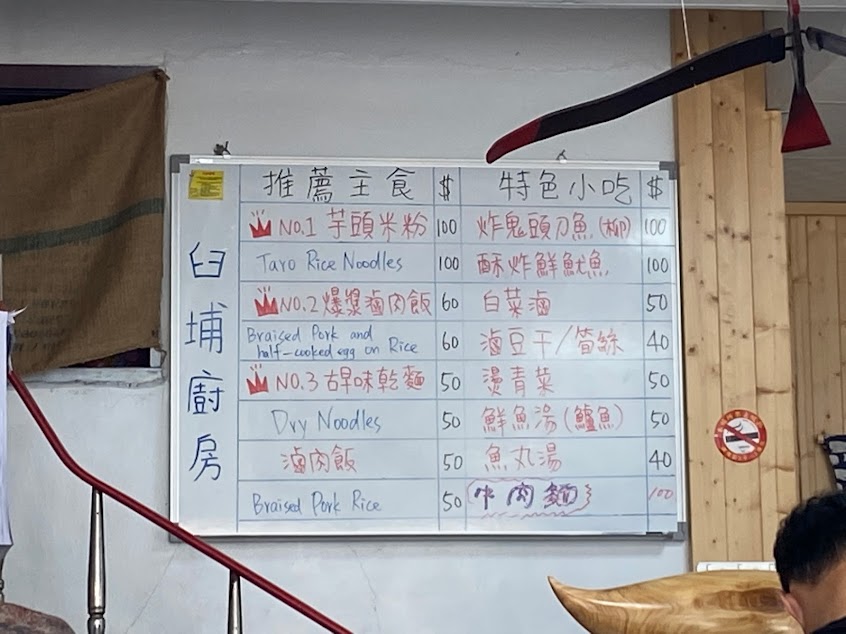 推薦主食 $ 特色小吃 $
NO.1 芋頭米粉 100 炸鬼頭刀魚(柳) 100
Taro Rice Noodles 100 酥炸鮮魷魚 100
NO.2 爆漿滷肉飯 60 白菜滷 50
Braised Pork and half-cooked egg on Rice 60 滷豆干/筍絲 40
NO.3 古早味乾麵 50 燙青菜 50
Dry Noodles 50 鮮魚湯(鱸魚) 50
滷肉飯 50 魚丸湯 40
Braised Pork Rice 50 牛肉麵 100
臼埔廚房